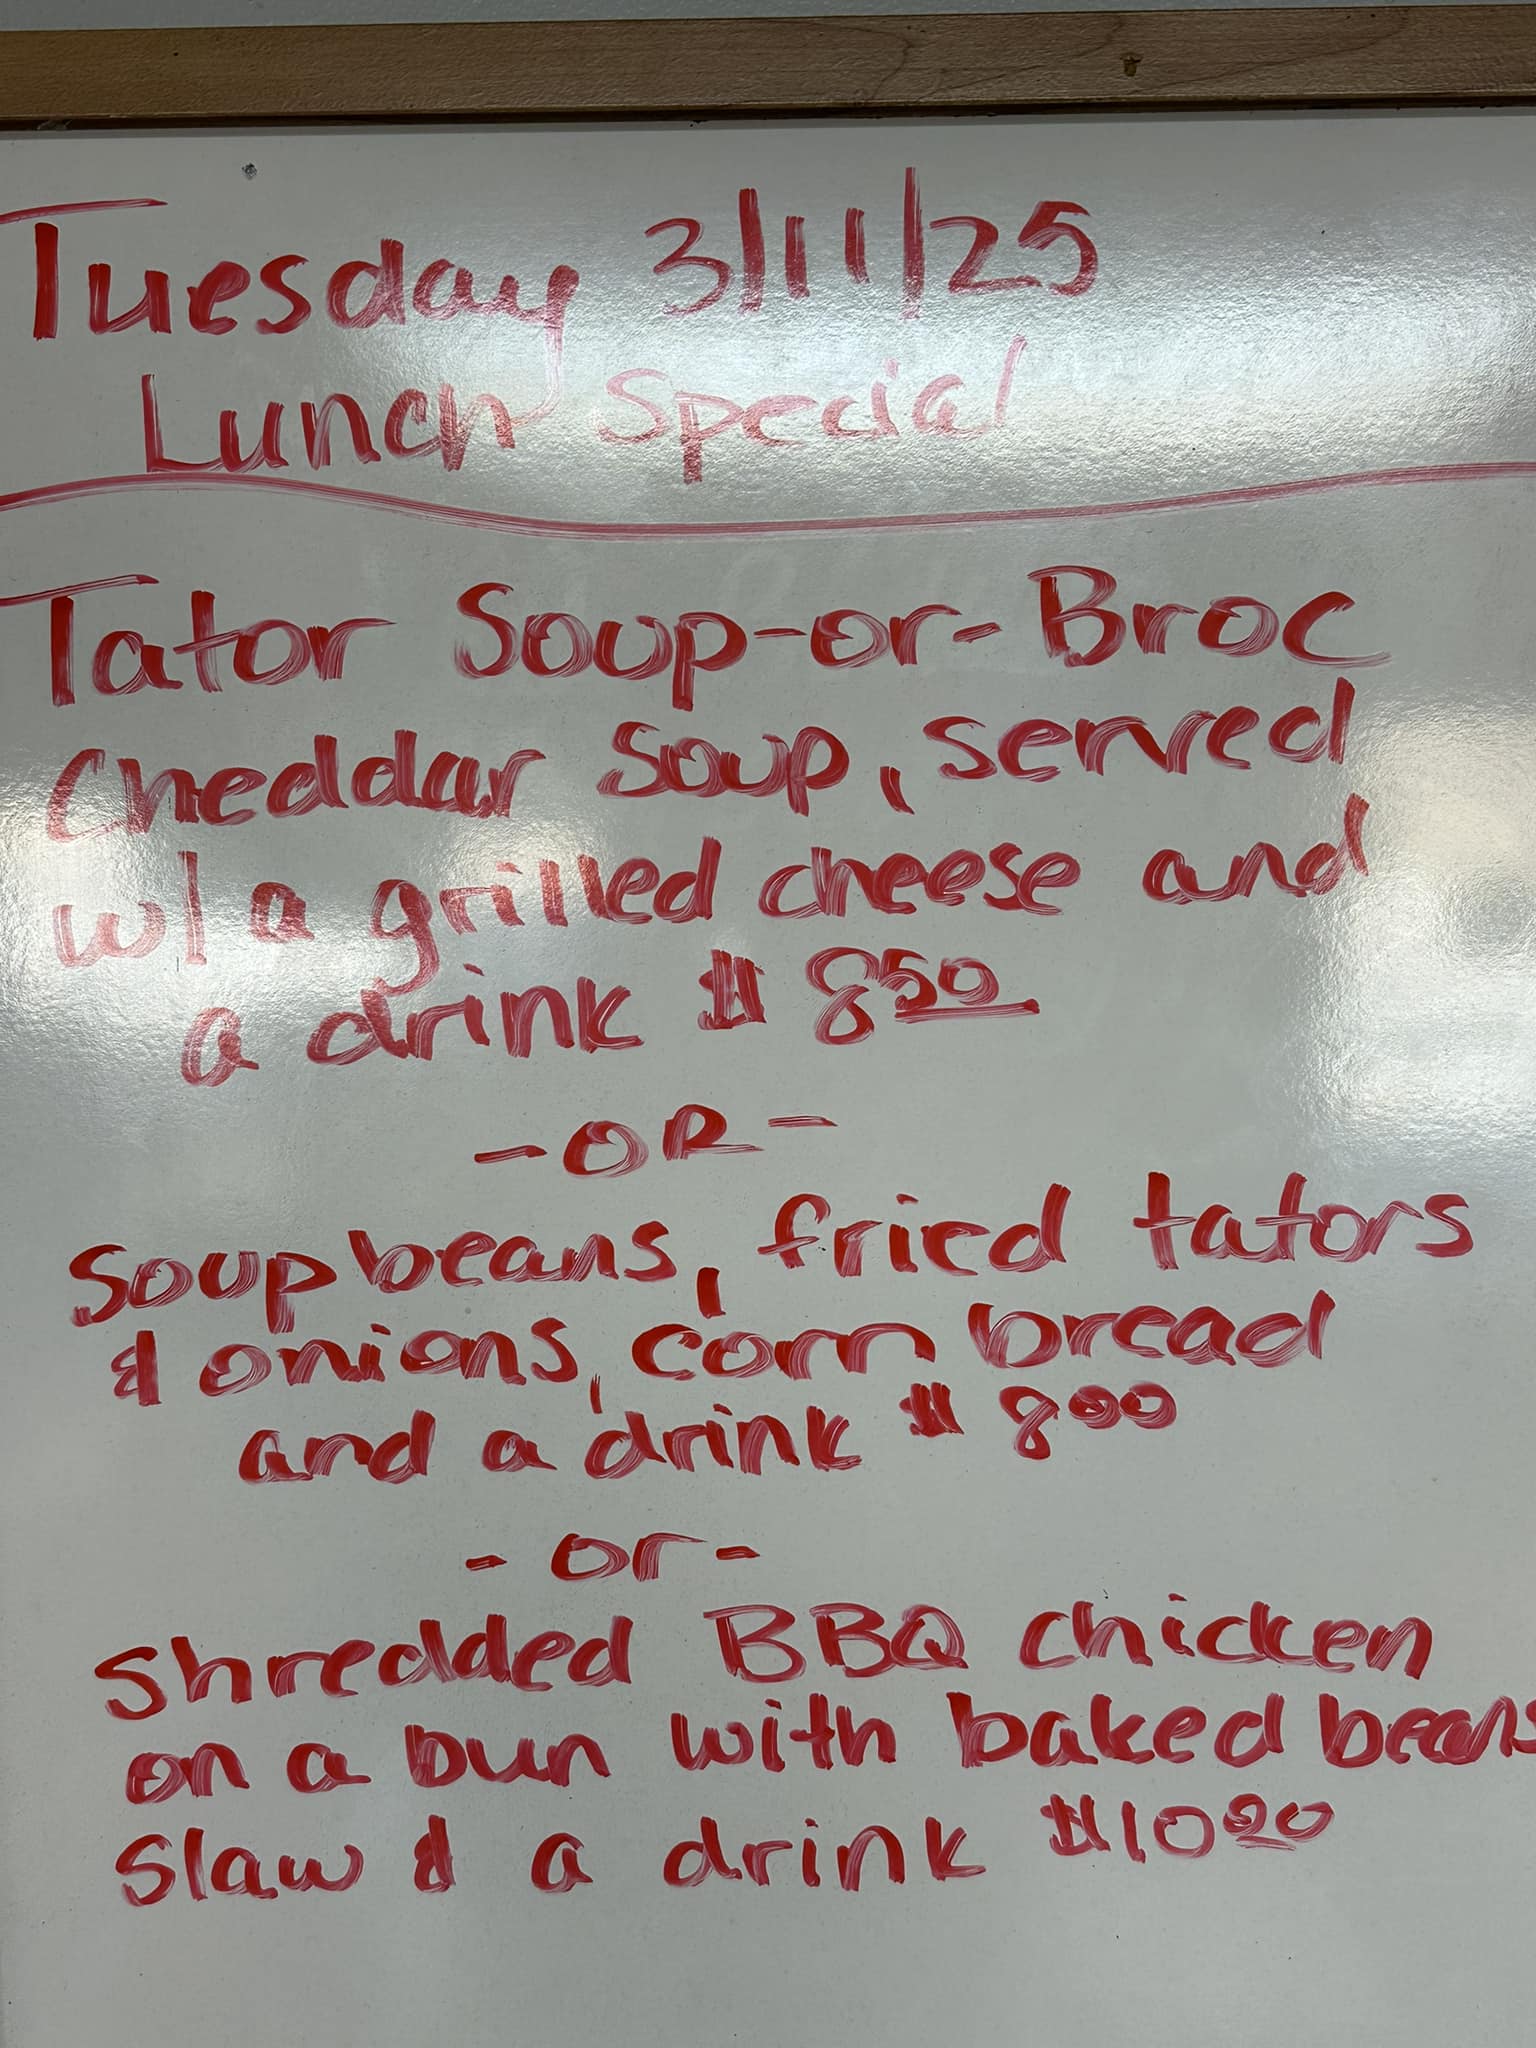 Tuesday 3/11/25
Lunch Special
Tator Soup-or-Broc
Cheddar Soup, served
w/ a grilled cheese and
a drink $8.50
-OR-
Soupbeans, fried tators
& onions, corn bread
and a drink $8.00
-or-
Shredded BBQ chicken
on a bun with baked beans
Slaw & a drink $10.00